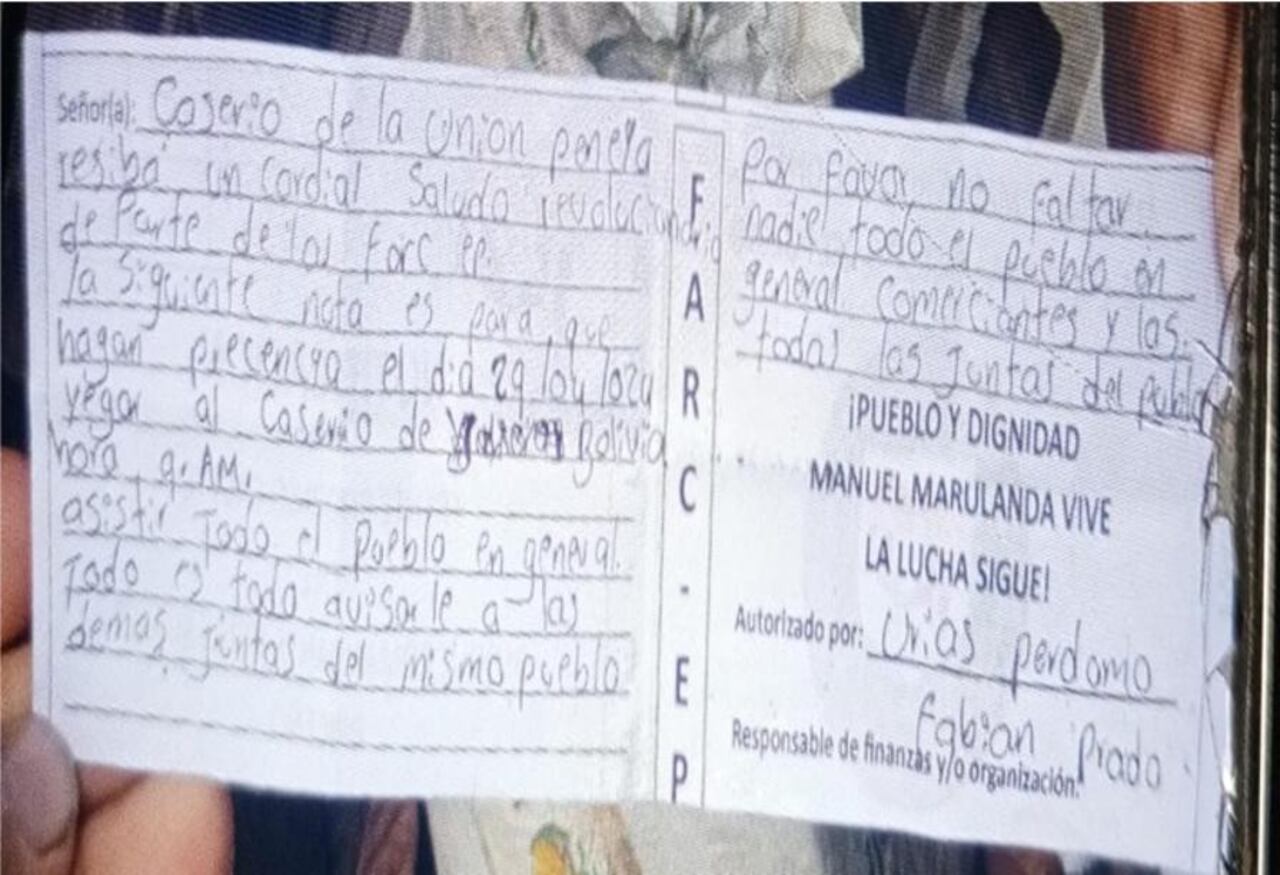 Señor(a): Caserio de la Union peneya
resiba un Cordial Saludo revolucionario
de Parte de las farc ep.
la Siguiente nota es para que
hagan precencya el dia 29/04/024
yegar al Caserio de Bolivia
hora 9. AM,
asistir Todo el pueblo en general.
Todo es todo avisarle a las
demas juntas del mismo pueblo
FARC-EP
Por favor no faltar
nadie todo el pueblo en
general comerciantes y las
todas las Juntas del pueblo
¡PUEBLO Y DIGNIDAD
MANUEL MARULANDA VIVE
LA LUCHA SIGUE!
Autorizado por: Urias perdomo
Fabian Prado.
Responsable de finanzas y/o organización.